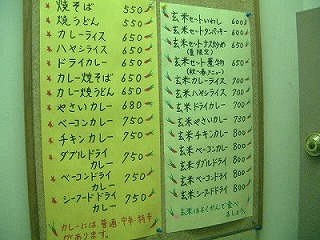 焼そば 550
焼うどん 550
カレーライス 550
ハヤシライス 550
ドライカレー 550
カレー焼そば 650
カレー焼うどん 650
やさいカレー 680
ベーコンカレー 750
チキンカレー 750
ダブルドライ
カレー 750
ベーコンドライ
カレー 750
シーフードドライ
カレー 750
カレーには普通・中辛・特辛
があります。
玄米セットいわし 600
玄米セット
玄米セットナス炒め 650
(夏限定)
玄米セット 650
(秋〜春メニュー)
玄米カレーライス 700
玄米ハヤシライス 700
玄米ドライカレー 700
玄米やさいカレー 730
玄米チキンカレー 800
玄米ベーコンカレー 800
玄米ダブルドライ 800
玄米ベーコンドライ 800
玄米シーフードドライ 800
玄米はよくかんで食べ
ましょう。